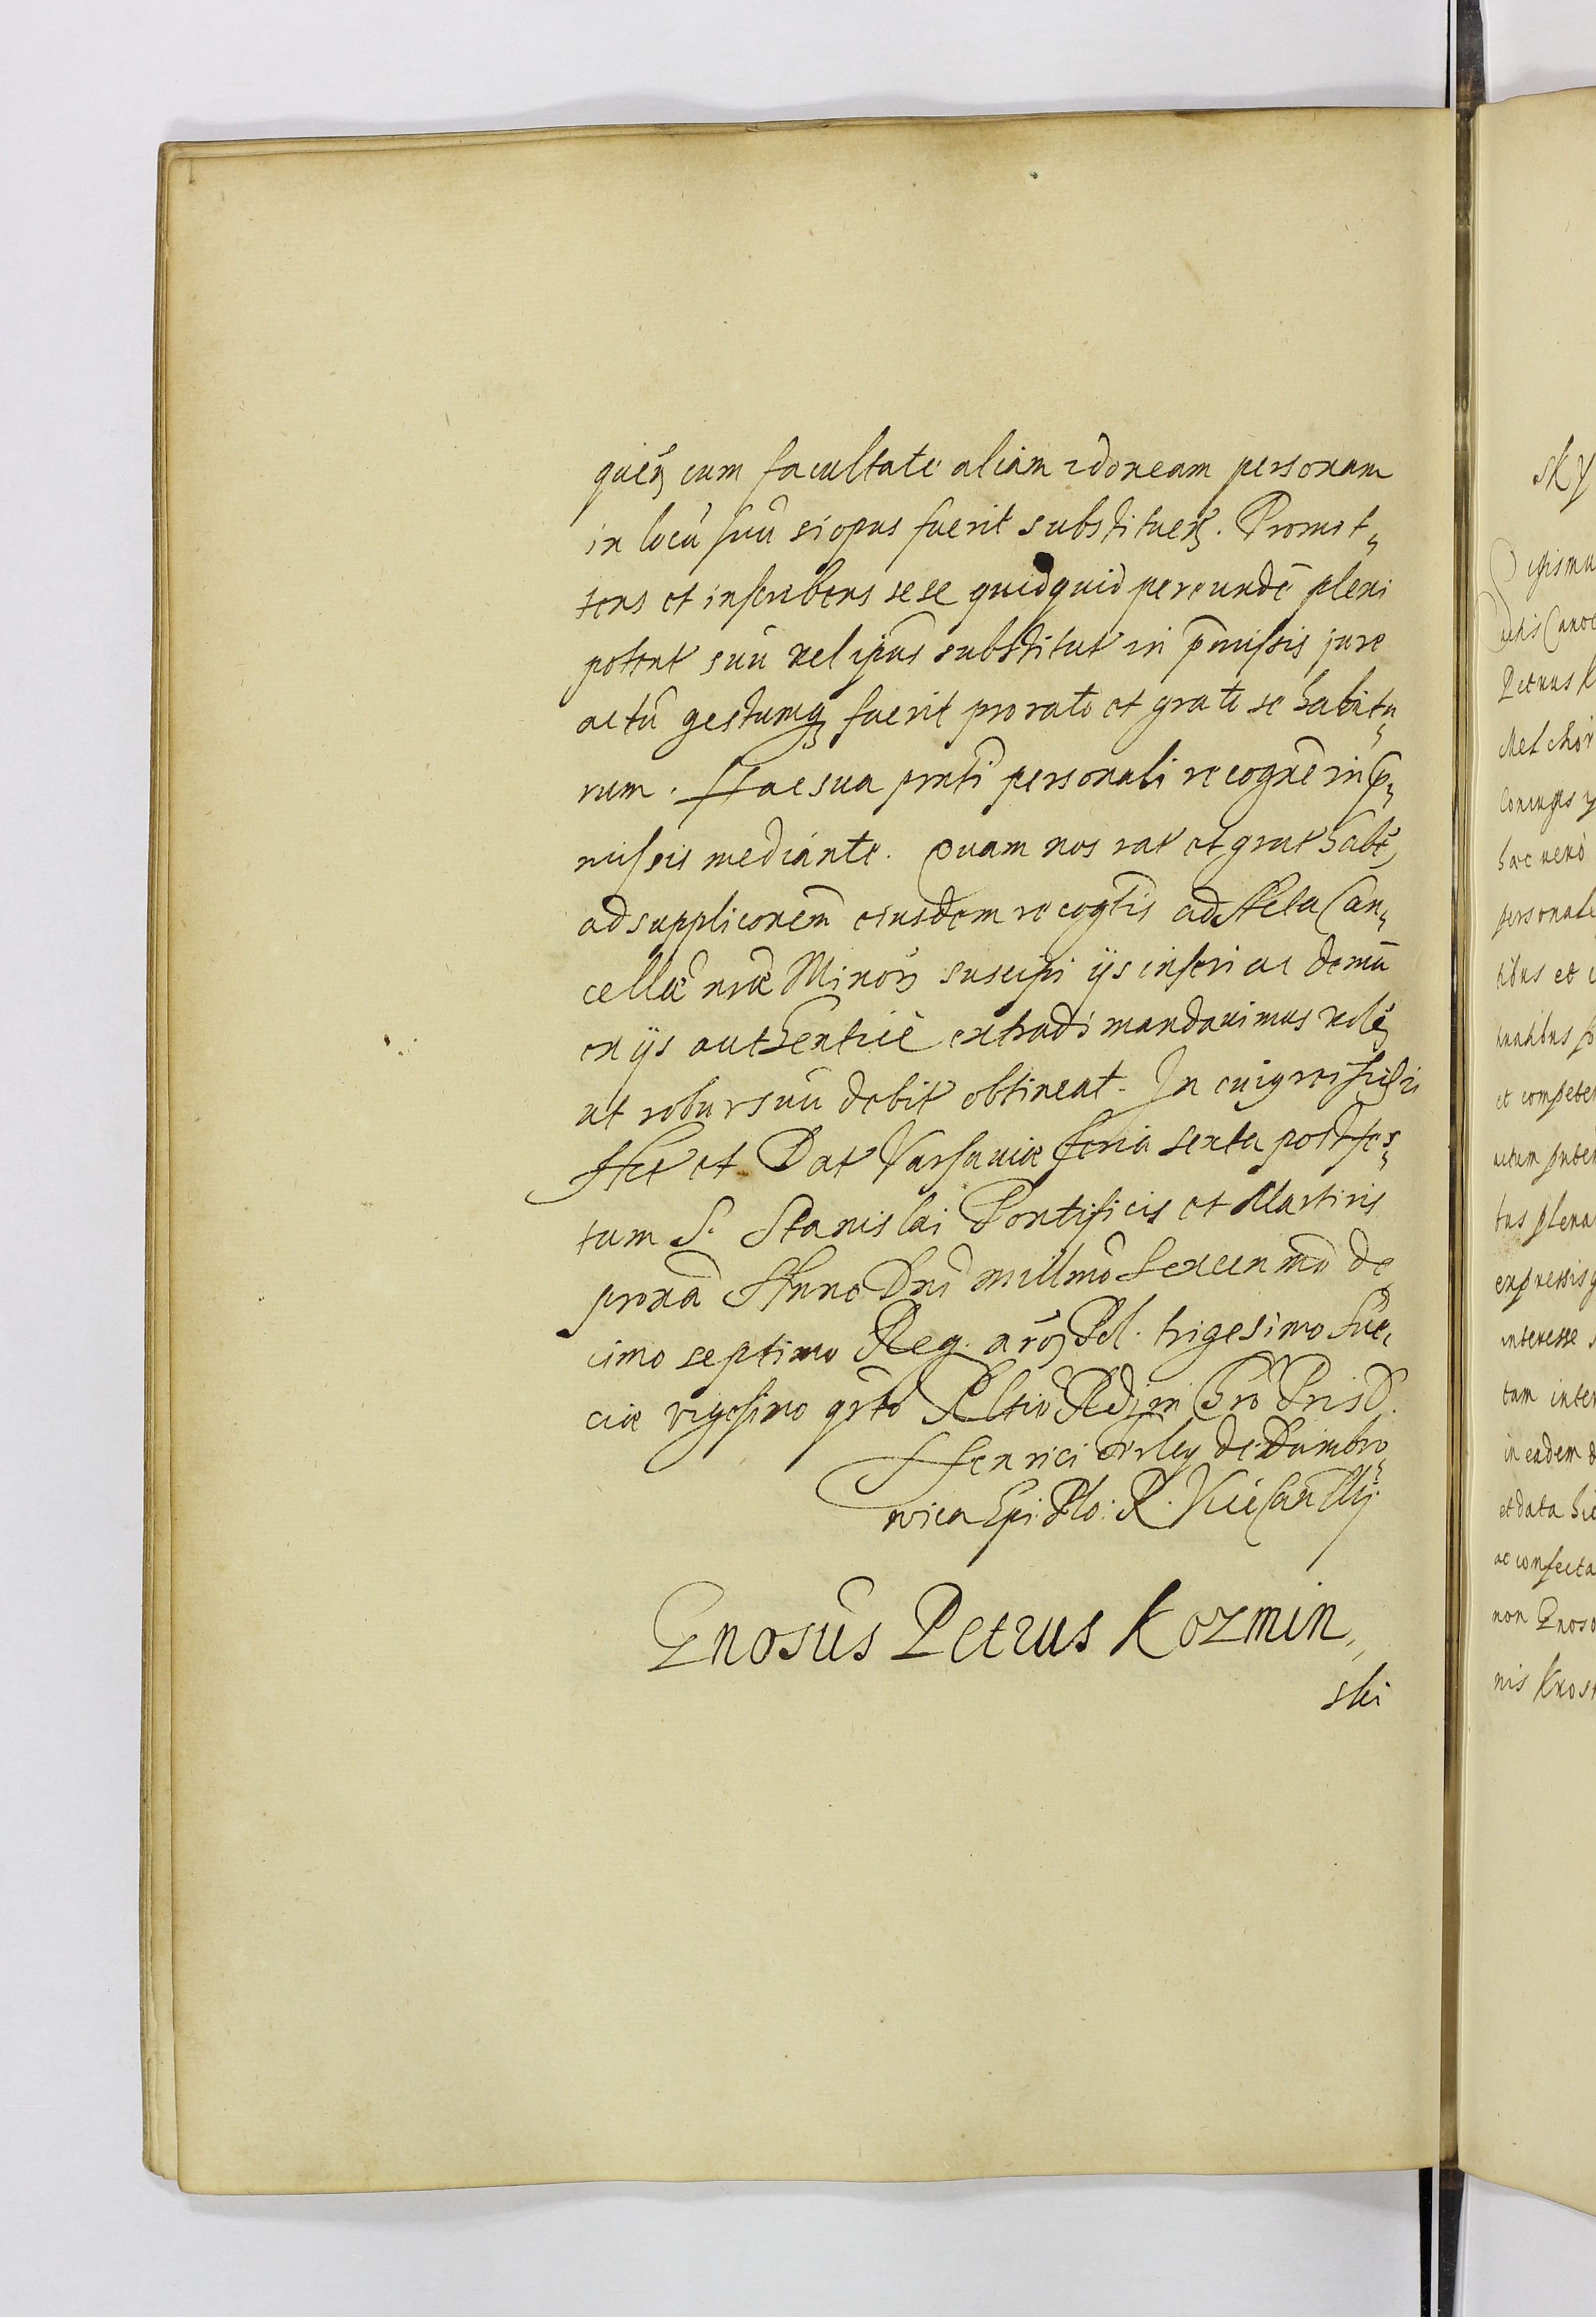 quē cum facultate aliam idoneam personam
in locū suū si opus fuerit substituē. Promit„
tens et inscribens sese quidquid per eundē pleni
potent suū vel ipsius substitut in p̄missis jure
actū gestumq fuerit pro rato et grato se habitu„
rum. Hac sua pn̄ti personali recogn̄e in p̄„
missis mediante. Quam nos rat et grat habē,
ad supplicōnem eiusdem recogn̄tis ad Acta Can„
cellæ nr̄æ Minoꝝ suscipi ijs inseri ac demū
ex ijs authenticè extradi mandauimus volē
ut robur suū debit obtineat. In cuiꝰ rei fidē
Act et Dat Varsauiæ feria sexta post fes„
tum S. Stanislai Pontificis et Martiris
proxā Anno Dni millmo Sexcenmo de
cimo septimo Reg. nr̄oꝝ Pol. trigesimo Sue,
ciæ vigesimo qrto Rltio Rd̄i in Chro Pris D.
Henrici Firley de Dambro„
wica Epi. Plo: R. Vicecancllij
Gnosus Petrus Kozmin„
ski
sky
Sigismu
actis Canc
Petrus K
Melchior
Coniuges
hac vero
personale
tibus et
et compete
actum pn̄te
tus plena
expressis
interesse
tam inter
in eadem
et data
ac confecta
non Gnoso
nis Kros